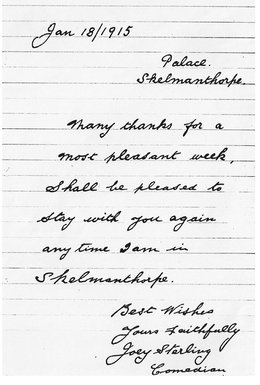 Jan 18/1915
Palace.
Skelmanthorpe.
Many thanks for a
most pleasant week,
Shall be pleased to
stay with you again
anytime I am in
Skelmanthorpe.
Best Wishes
Yours faithfully
Joey Starling
Comedian